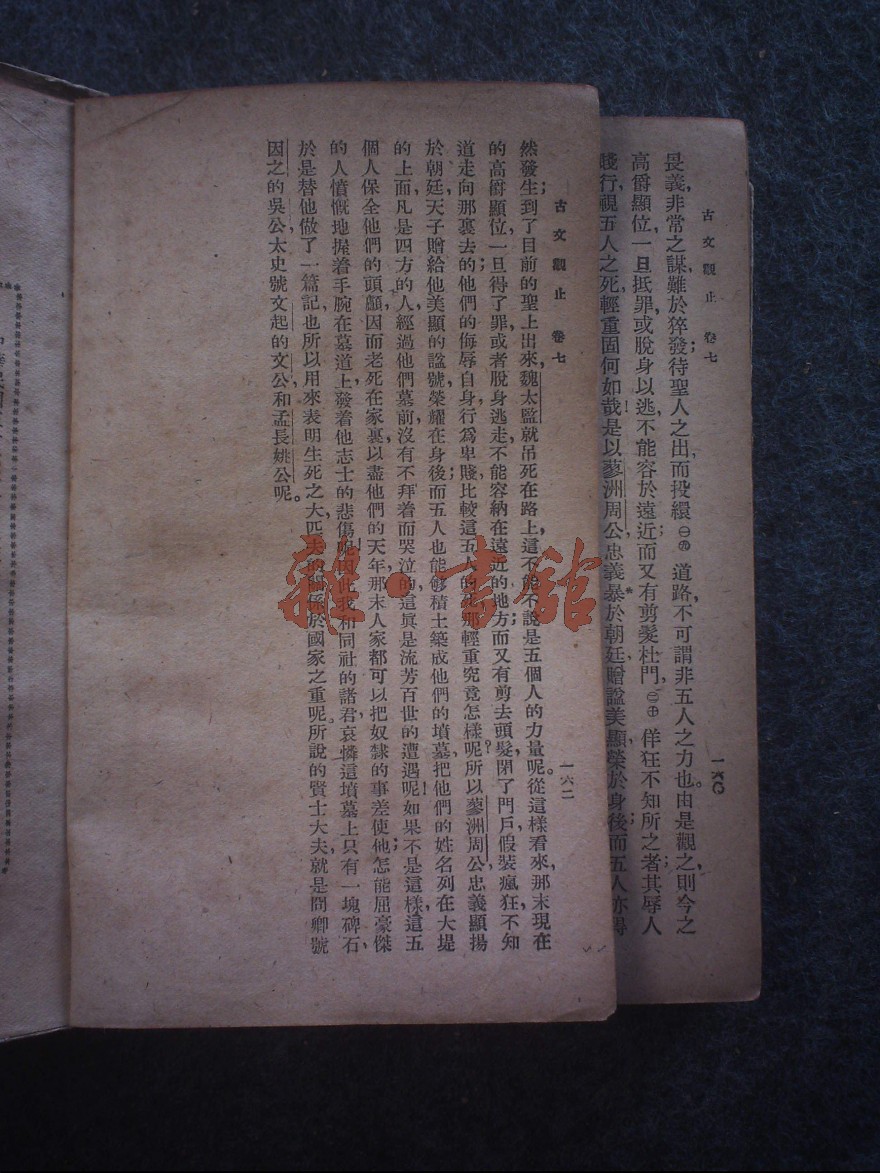 古文觀止 卷七 一六〇
畏義,非常之謀,難於猝發;待聖人之出,而投繯㊀㊈道路,不可謂非五人之力也。由是觀之,則今之
高爵顯位,一旦抵罪,或脫身以逃,不能容於遠近;而又有剪髮杜門㊁㊉佯狂不知所之者,其辱人
賤行,視五人之死,輕重固何如哉!是以蓼洲周公,忠義暴於朝廷,贈諡美顯,榮於身後;而五人亦得
古文觀止 卷七 一六二
然發生;到了目前的聖上出來,魏太監就吊死在路上,這不能不說是五個人的力量呢。從這樣看來,那末現在
的高爵顯位,一旦得了罪,或者脫身逃走,不能容納在遠近的地方;而又有剪去頭髮,閉了門戶,假裝瘋狂,不知
道走向那裏去的;他們的侮辱自身,行爲卑賤,比較這五人的死,那輕重究竟怎樣呢?所以蓼洲周公,忠義顯揚
於朝廷,天子贈給他美顯的諡號,榮耀在身後;而五人也能够積土築成他們的墳墓,把他們的姓名,列在大堤
的上面,凡是四方的人,經過他們墓前,沒有不拜着而哭泣的,這眞是流芳百世的遭遇呢!如果不是這樣,這五
個人保全他們的頭顱,因而老死在家裏,以盡他們的天年,那末人家都可以把奴隸的事差使他,怎能屈豪傑
的人,憤慨地握着手腕,在墓道上,發着他志士的悲傷呢!因此我和同社的諸君,哀憐這墳墓上只有一塊碑石,
於是替他做了一篇記,也所以用來表明生死之大,匹夫的關係於國家之重呢。所說的賢士大夫,就是冏卿號
因之的吳公,太史號文起的文公,和孟長姚公呢。
雜·書館